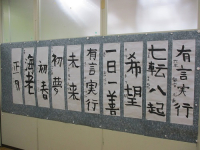 有言実行
七転八起
希望
一日一善
有言実行
未来
初夢
初春
海老
正月